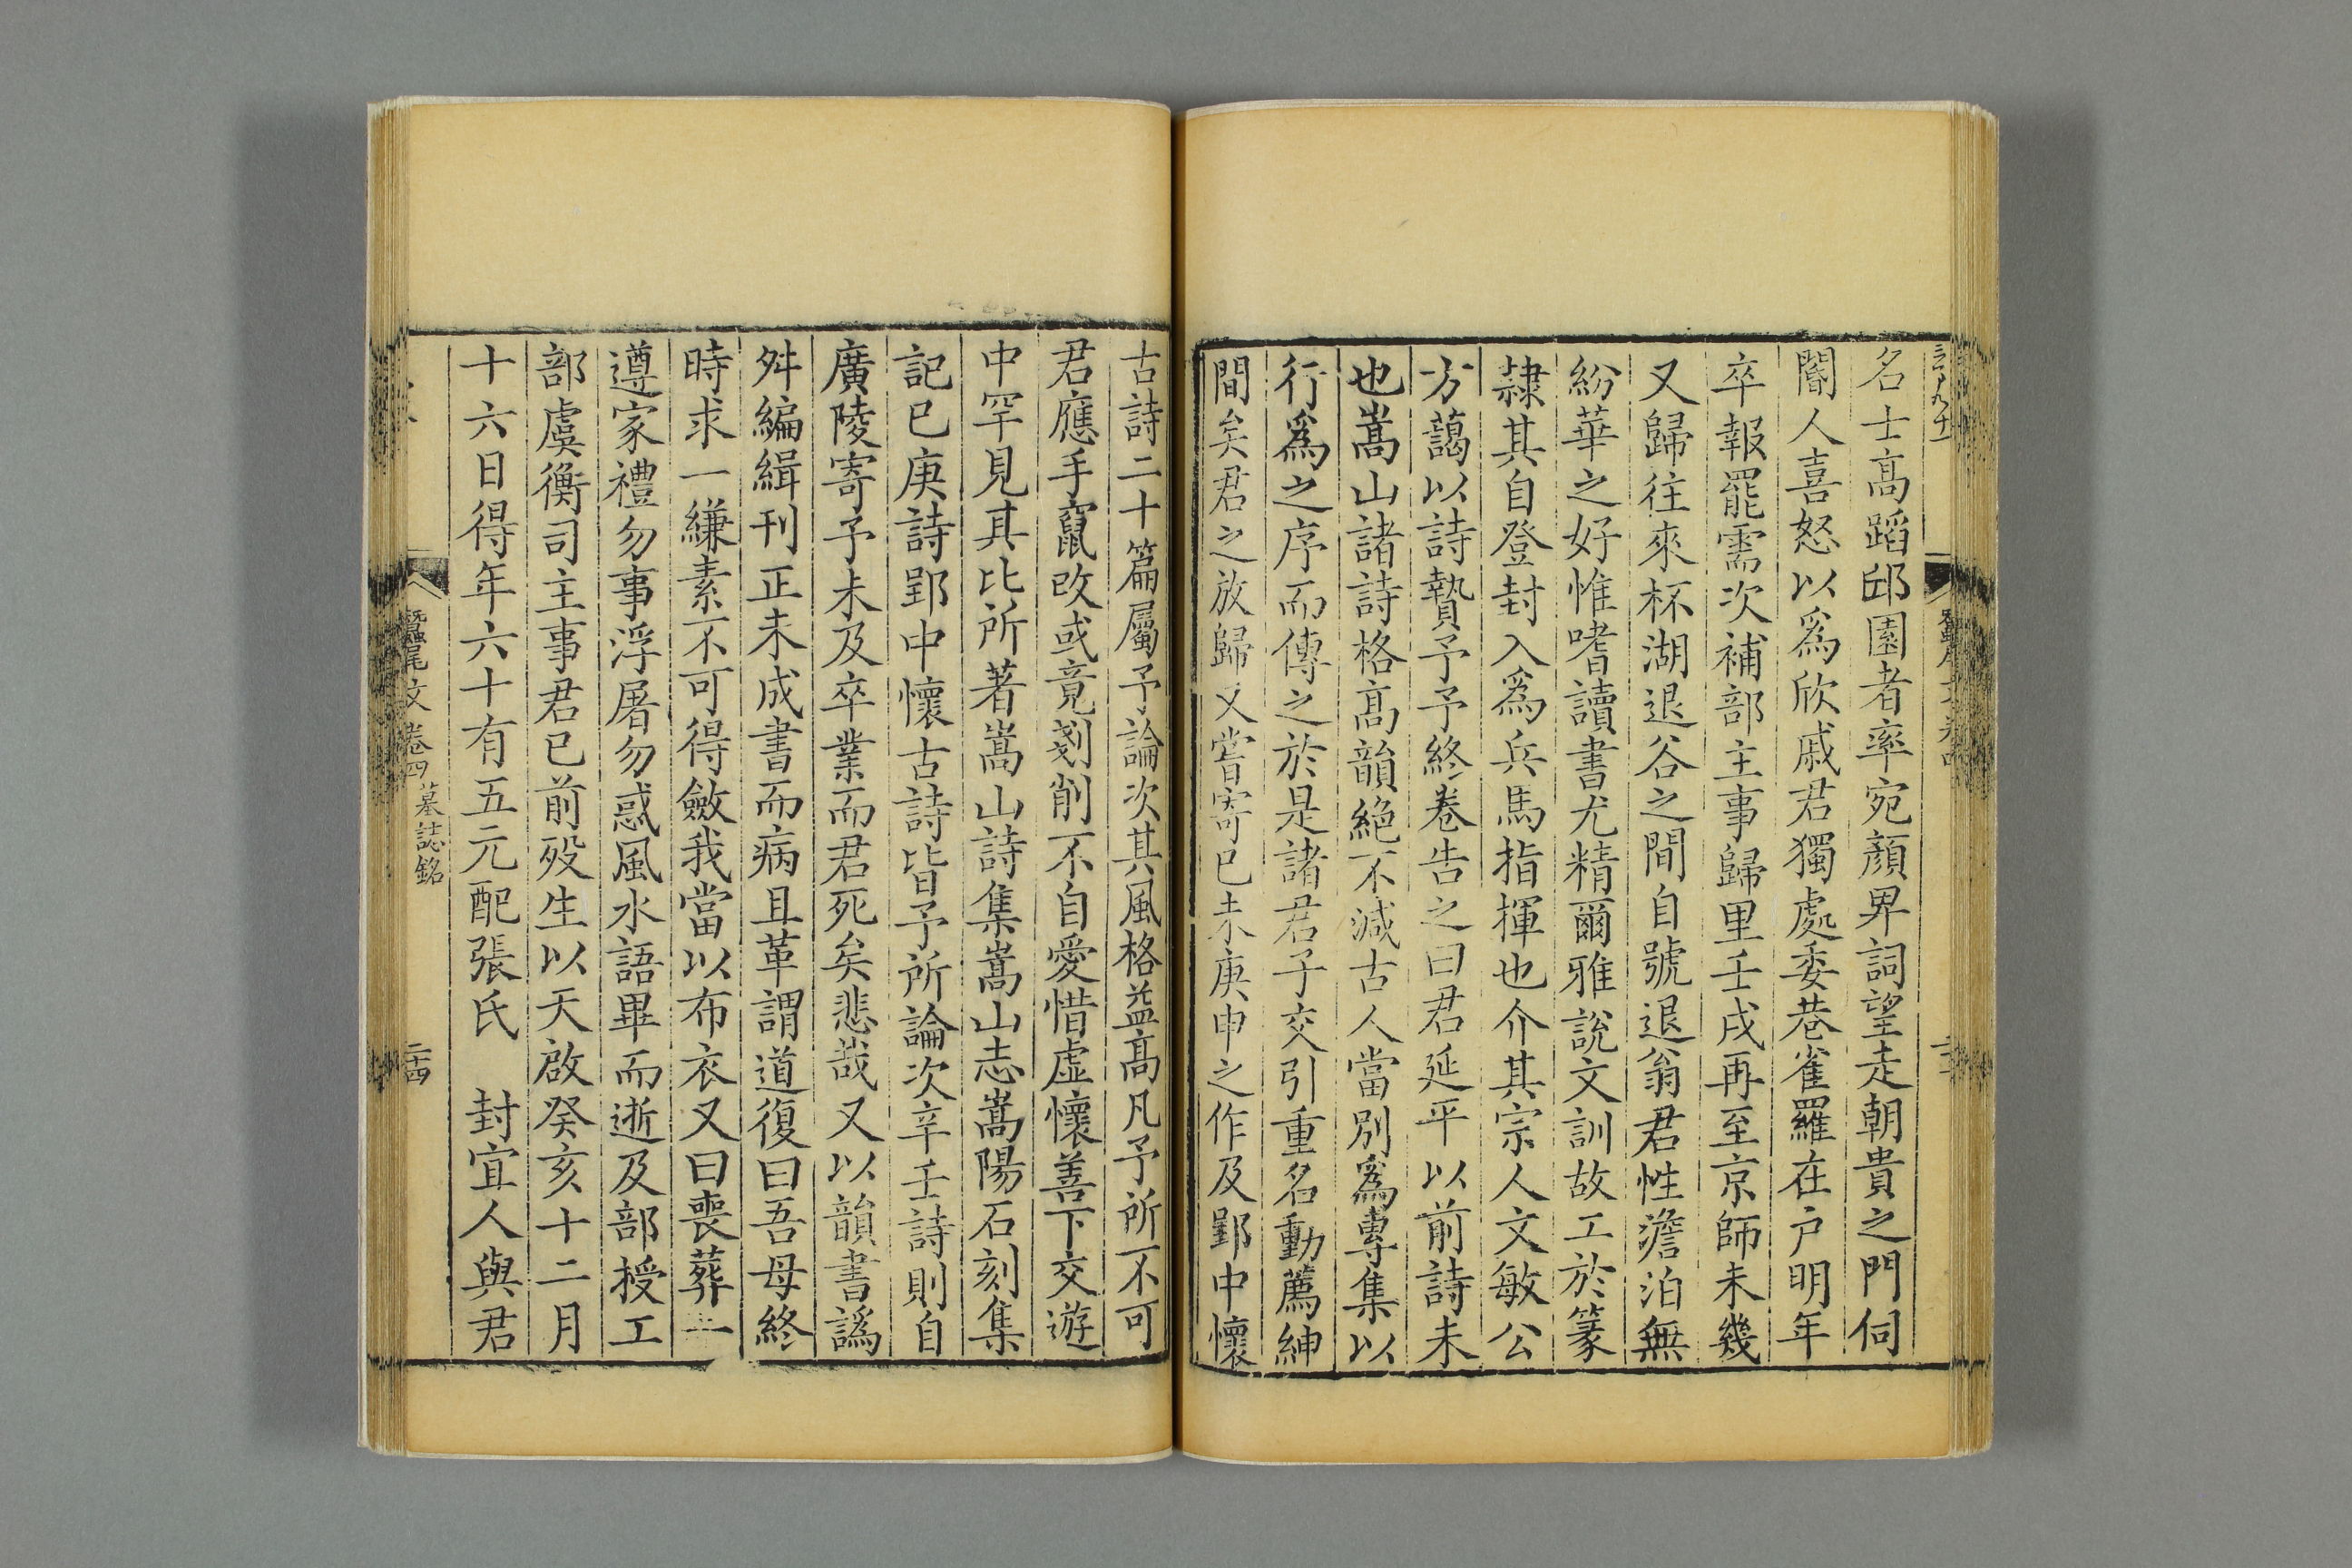 名士高蹈邱園者率宛顏畀詞望走朝貴之門伺
閽人喜怒以爲欣戚君獨處委巷雀羅在户明年
卒報罷需次補部主事歸里壬戌再至京師未幾
又歸往來杯湖退谷之間自號退翁君性澹泊無
紛華之好惟嗜讀書尤精爾雅説文訓故工於篆
隷其自登封入爲兵馬指揮也介其宗人文敏公
方藹以詩贄予予終卷告之曰君延平以前詩未
也嵩山諸詩格高韻絶不減古人當别爲專集以
行爲之序而傳之於是諸君子交引重名動薦紳
間矣君之放歸又嘗寄已未庚申之作及郢中懷
古詩二十篇屬予論次其風格益高凡予所不可
君應手竄改或竟剗削不自愛惜虚懷善下交遊
中罕見其比所著嵩山詩集嵩山志嵩陽石刻集
記已庚詩郢中懷古詩皆予所論次辛壬詩則自
廣陵寄予未及卒業而君死矣悲哉又以韻書譌
舛編緝刊正未成書而病且革謂道復曰吾母終
時求一縑素不可得斂我當以布衣又曰喪葬一
遵家禮勿事浮屠勿惑風水語畢而逝及部授工
部虞衡司主事君已前殁生以天啟癸亥十二月
十六日得年六十有五元配張氏　封宜人與君
蠶尾文 卷四 墓誌銘 二十四